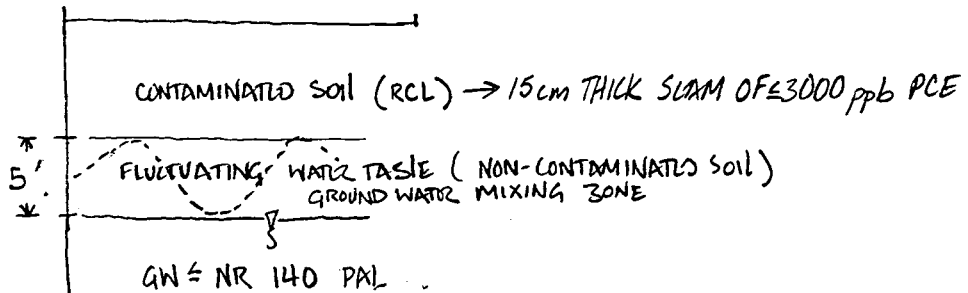 CONTAMINATED SOIL (RCL) → 15cm THICK SEAM OF ≤3000 ppb PCE
5'
FLUCTUATING WATER TABLE (NON-CONTAMINATED SOIL)
GROUND WATER MIXING ZONE
GW ≤ NR 140 PAL